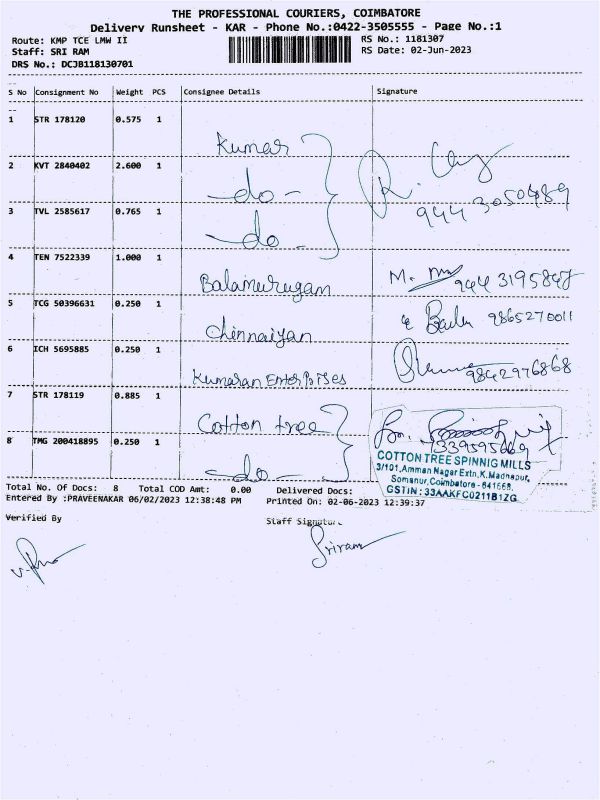 THE PROFESSIONAL COURIERS, COIMBATORE
Delivery Runsheet - KAR - Phone No.:0422-3505555 - Page No.:1
Route: KMP TCE LMW II
RS No.: 1181307
Staff: SRI RAM
RS Date: 02-Jun-2023
DRS No.: DCJB118130701
S No Consignment No Weight PCS Consignee Details Signature
1 STR 178120 0.575 1
Kumar
2 KVT 2840402 2.600 1
-do-
944 3050489
3 TVL 2585617 0.765 1
-do-
4 TEN 7522339 1.000 1
Balamurugan M. 944 3195847
5 TCG 50396631 0.250 1
Chinnaiyan 9865270011
6 ICH 5695885 0.250 1
Kumaran Enterprises 9842976868
7 STR 178119 0.885 1
Cotton tree
8 TMG 200418895 0.250 1
-do-
COTTON TREE SPINNIG MILLS
3/101, Amman Nagar Extn, K.Madhapur,
Somanur, Coimbatore - 641668.
GSTIN : 33AAKFC0211B1ZG
Total No. Of Docs: 8 Total COD Amt: 0.00 Delivered Docs:
Entered By :PRAVEENAKAR 06/02/2023 12:38:48 PM Printed On: 02-06-2023 12:39:37
Verified By Staff Signature
Sriram